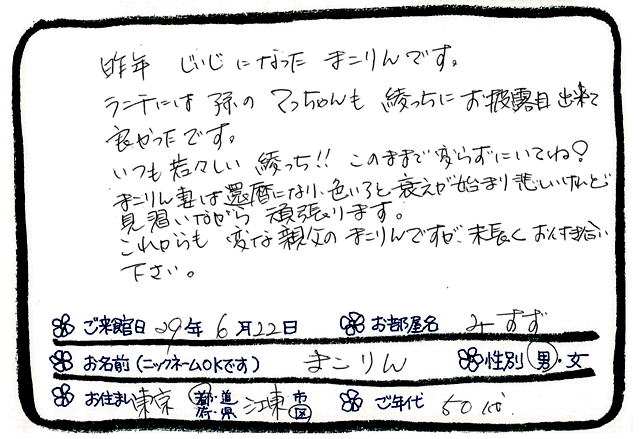 昨年 じいじになった まこりんです。
ランチには 孫の てっちゃんも 綾っちにお披露目出来て
良かったです。
いつも若々しい 綾っち!! このままで変らずにいてね?
まこりん妻は還暦になり、色いろと衰えが始まり悲しいけれど
見習いながら 頑張ります。
これからも 変な親父の まこりんですが、末長くお付き合い
下さい。
ご来館日 29年 6月22日 お部屋名 みすず
お名前(ニックネームOKです) まこりん 性別 男・女
お住まい 東京 都・道府・県 江東 市区 ご年代 50代.